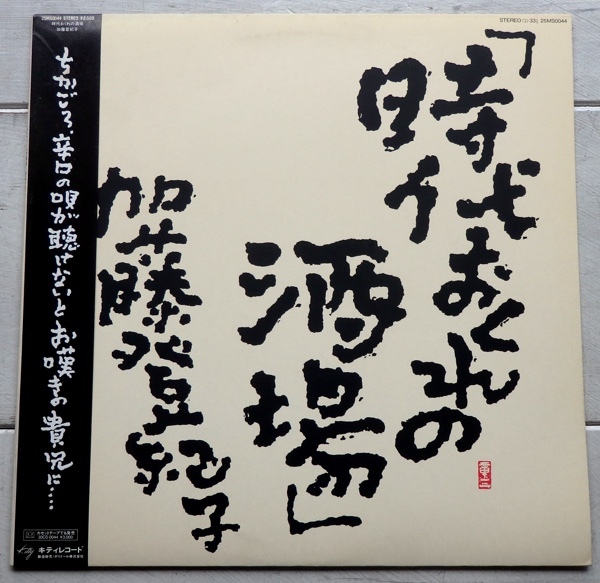 25MS0044 STEREO ¥2,500
時代おくれの酒場
加藤登紀子
ちかごろ、辛口の唄が聴けないとお嘆きの貴兄に…
カセットテープも発売
キティレコード
STEREO 33⅓ 25MS0044
「時代おくれの
酒場」
加藤登紀子